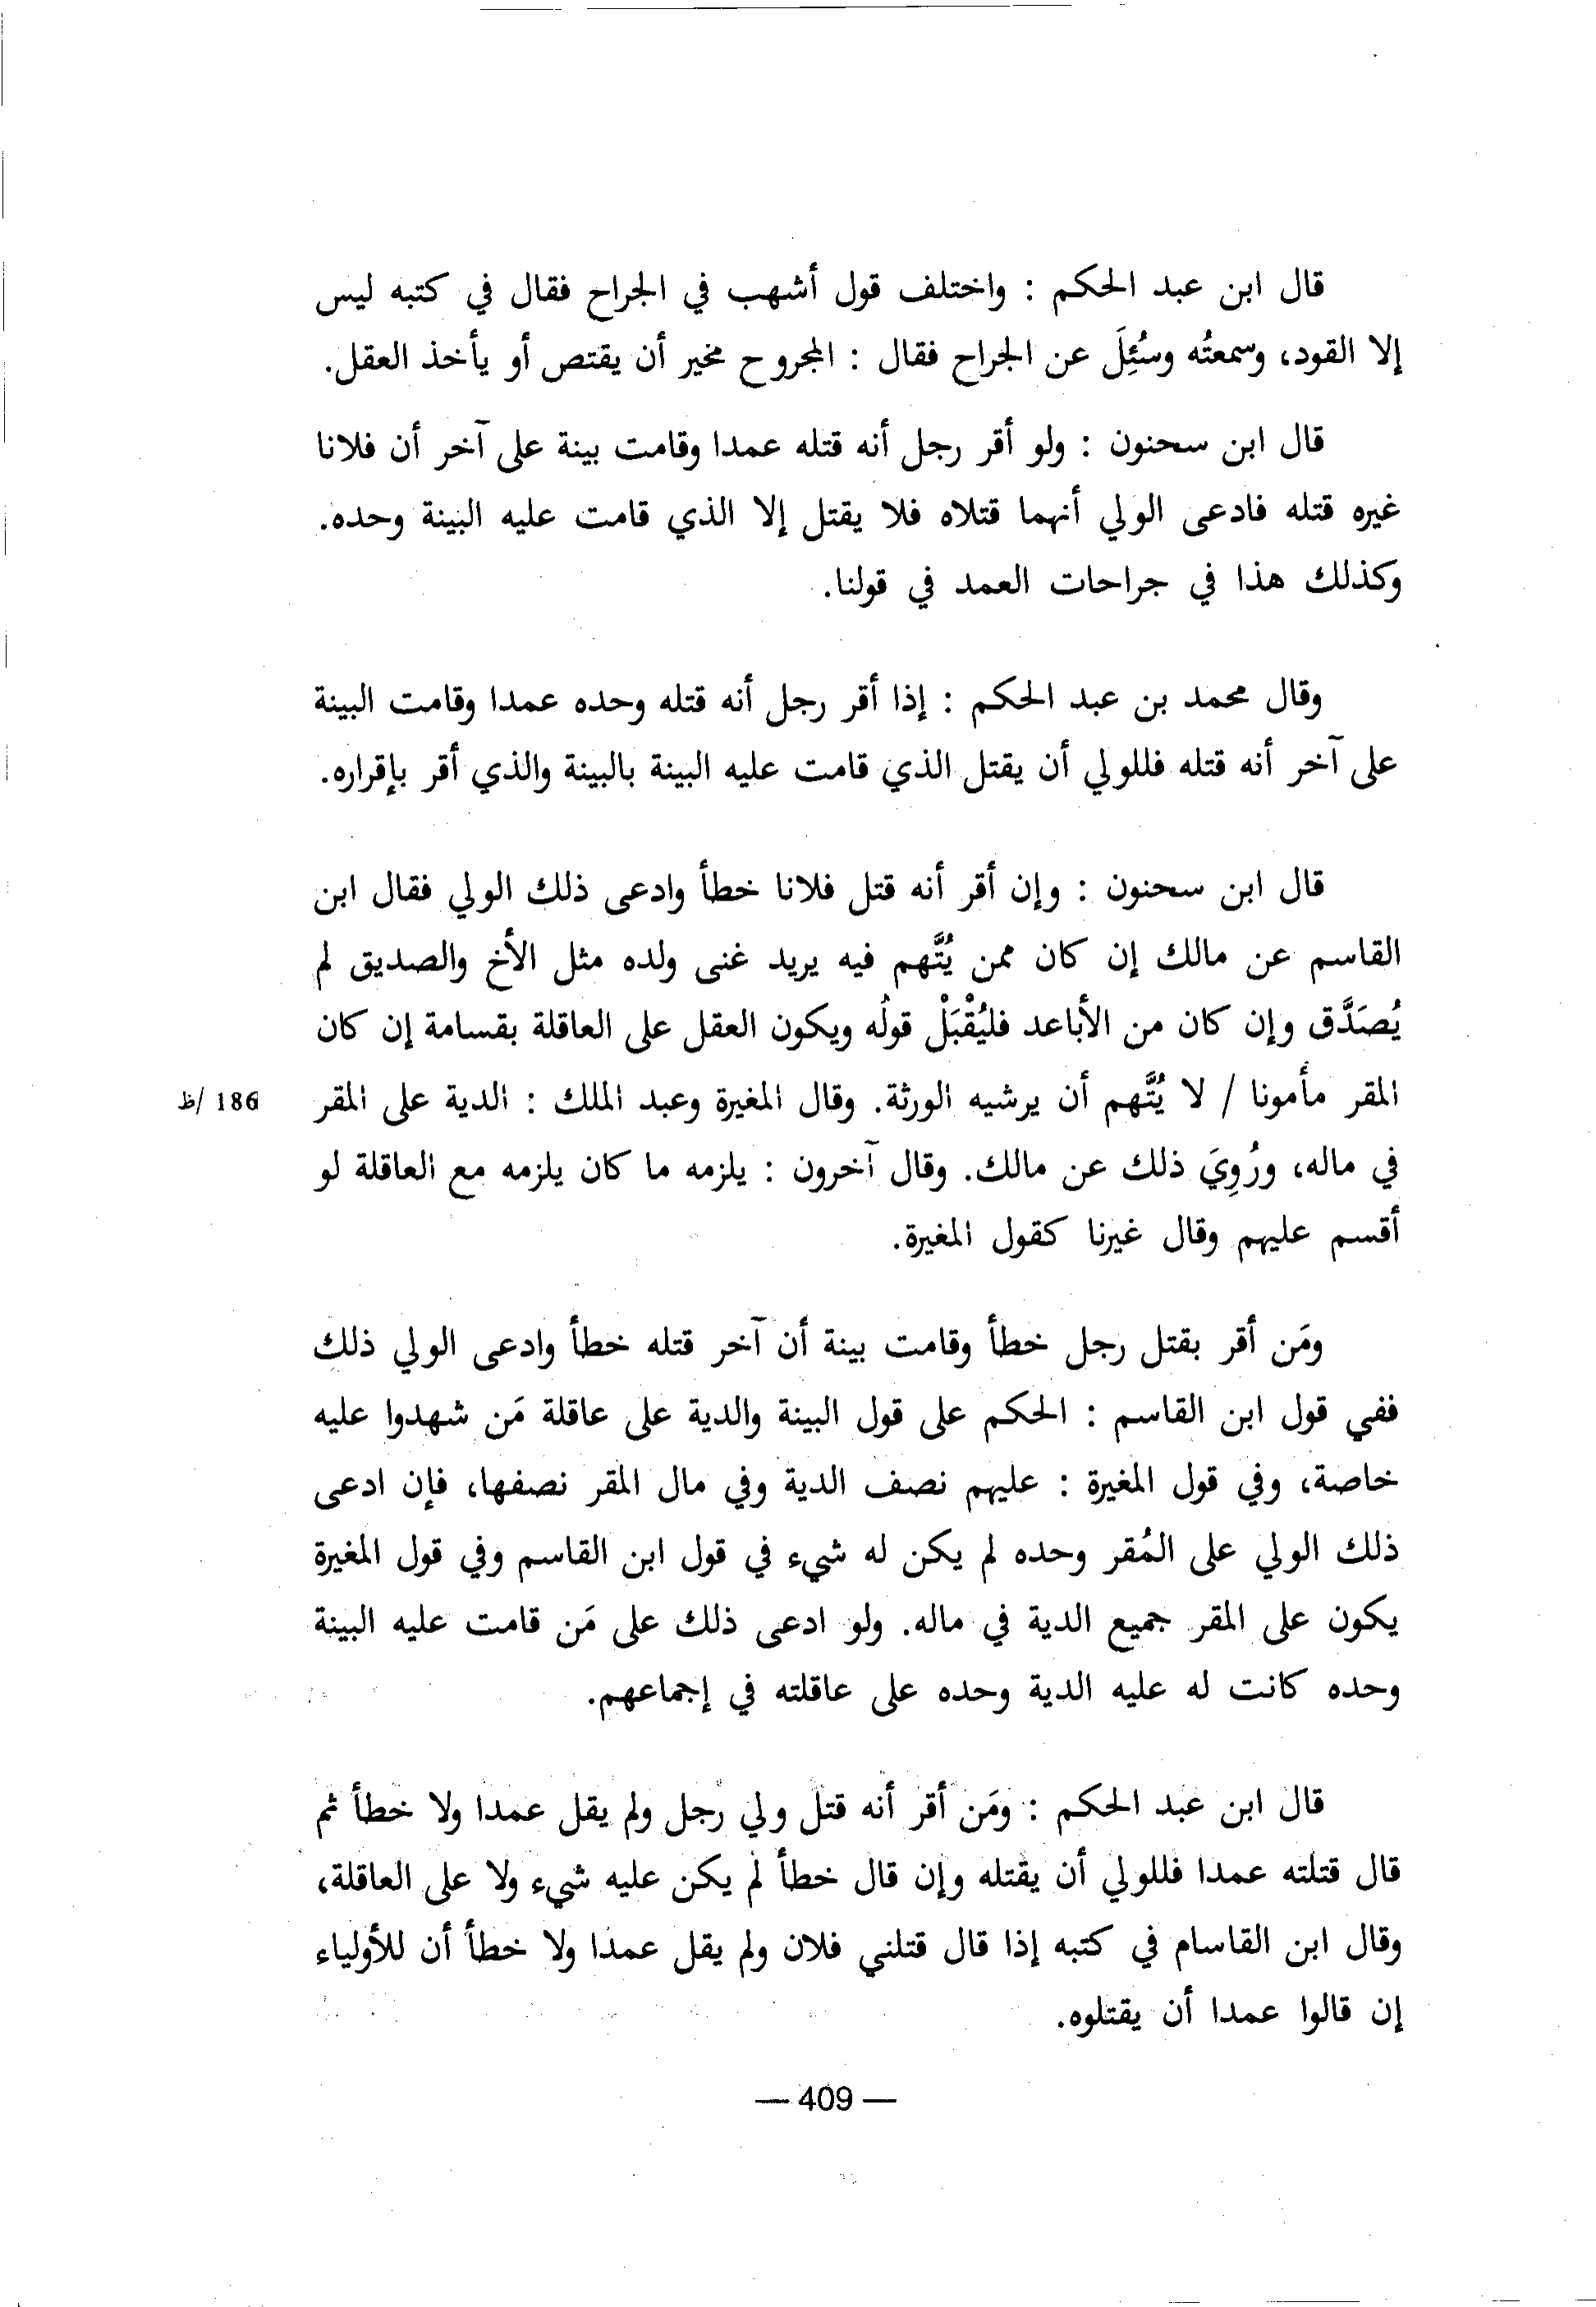 قال ابن عبد الحكم : واختلف قول أشهب في الجراح فقال في كتبه ليس
إلا القود، وسمعتُه وسُئِلَ عن الجراح فقال : المجروح مخير أن يقتص أو يأخذ العقل.
قال ابن سحنون : ولو أقر رجل أنه قتله عمدا وقامت بينة على آخر أن فلانا
غيره قتله فادعى الولي أنهما قتلاه فلا يقتل إلا الذي قامت عليه البينة وحده.
وكذلك هذا في جراحات العمد في قولنا.
وقال محمد بن عبد الحكم : إذا أقر رجل أنه قتله وحده عمدا وقامت البينة
على آخر أنه قتله فللولي أن يقتل الذي قامت عليه البينة بالبينة والذي أقر بإقراره.
قال ابن سحنون : وإن أقر أنه قتل فلانا خطأ وادعى ذلك الولي فقال ابن
القاسم عن مالك إن كان ممن يُتَّهم فيه يريد غنى ولده مثل الأخ والصديق لم
يُصَدَّق وإن كان من الأباعد فليُقْبَلْ قولُه ويكون العقل على العاقلة بقسامة إن كان
المقر مأمونا / لا يُتَّهم أن يرشيه الورثة. وقال المغيرة وعبد الملك : الدية على المقر 186 /ظ
في ماله، ورُوِيَ ذلك عن مالك. وقال آخرون : يلزمه ما كان يلزمه مع العاقلة لو
أقسم عليهم وقال غيرنا كقول المغيرة.
ومَن أقر بقتل رجل خطأ وقامت بينة أن آخر قتله خطأ وادعى الولي ذلك
ففي قول ابن القاسم : الحكم على قول البينة والدية على عاقلة مَن شهدوا عليه
خاصة، وفي قول المغيرة : عليهم نصف الدية وفي مال المقر نصفها، فإن ادعى
ذلك الولي على المُقر وحده لم يكن له شيء في قول ابن القاسم وفي قول المغيرة
يكون على المقر جميع الدية في ماله. ولو ادعى ذلك على مَن قامت عليه البينة
وحده كانت له عليه الدية وحده على عاقلته في إجماعهم.
قال ابن عبد الحكم : ومَن أقر أنه قتل ولي رجل ولم يقل عمدا ولا خطأ ثم
قال قتلته عمدا فللولي أن يقتله وإن قال خطأ لم يكن عليه شيء ولا على العاقلة،
وقال ابن القاسام في كتبه إذا قال قتلني فلان ولم يقل عمدا ولا خطأ أن للأولياء
إن قالوا عمدا أن يقتلوه.
— 409 —